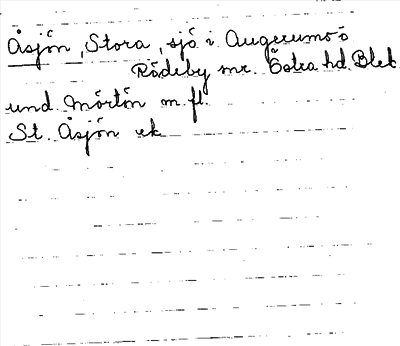 Åsjön, Stora, sjö i Augerums o
Rödeby snr. Östra hd. Blek
und. Mörtön m. fl.
St. Åsjön ek